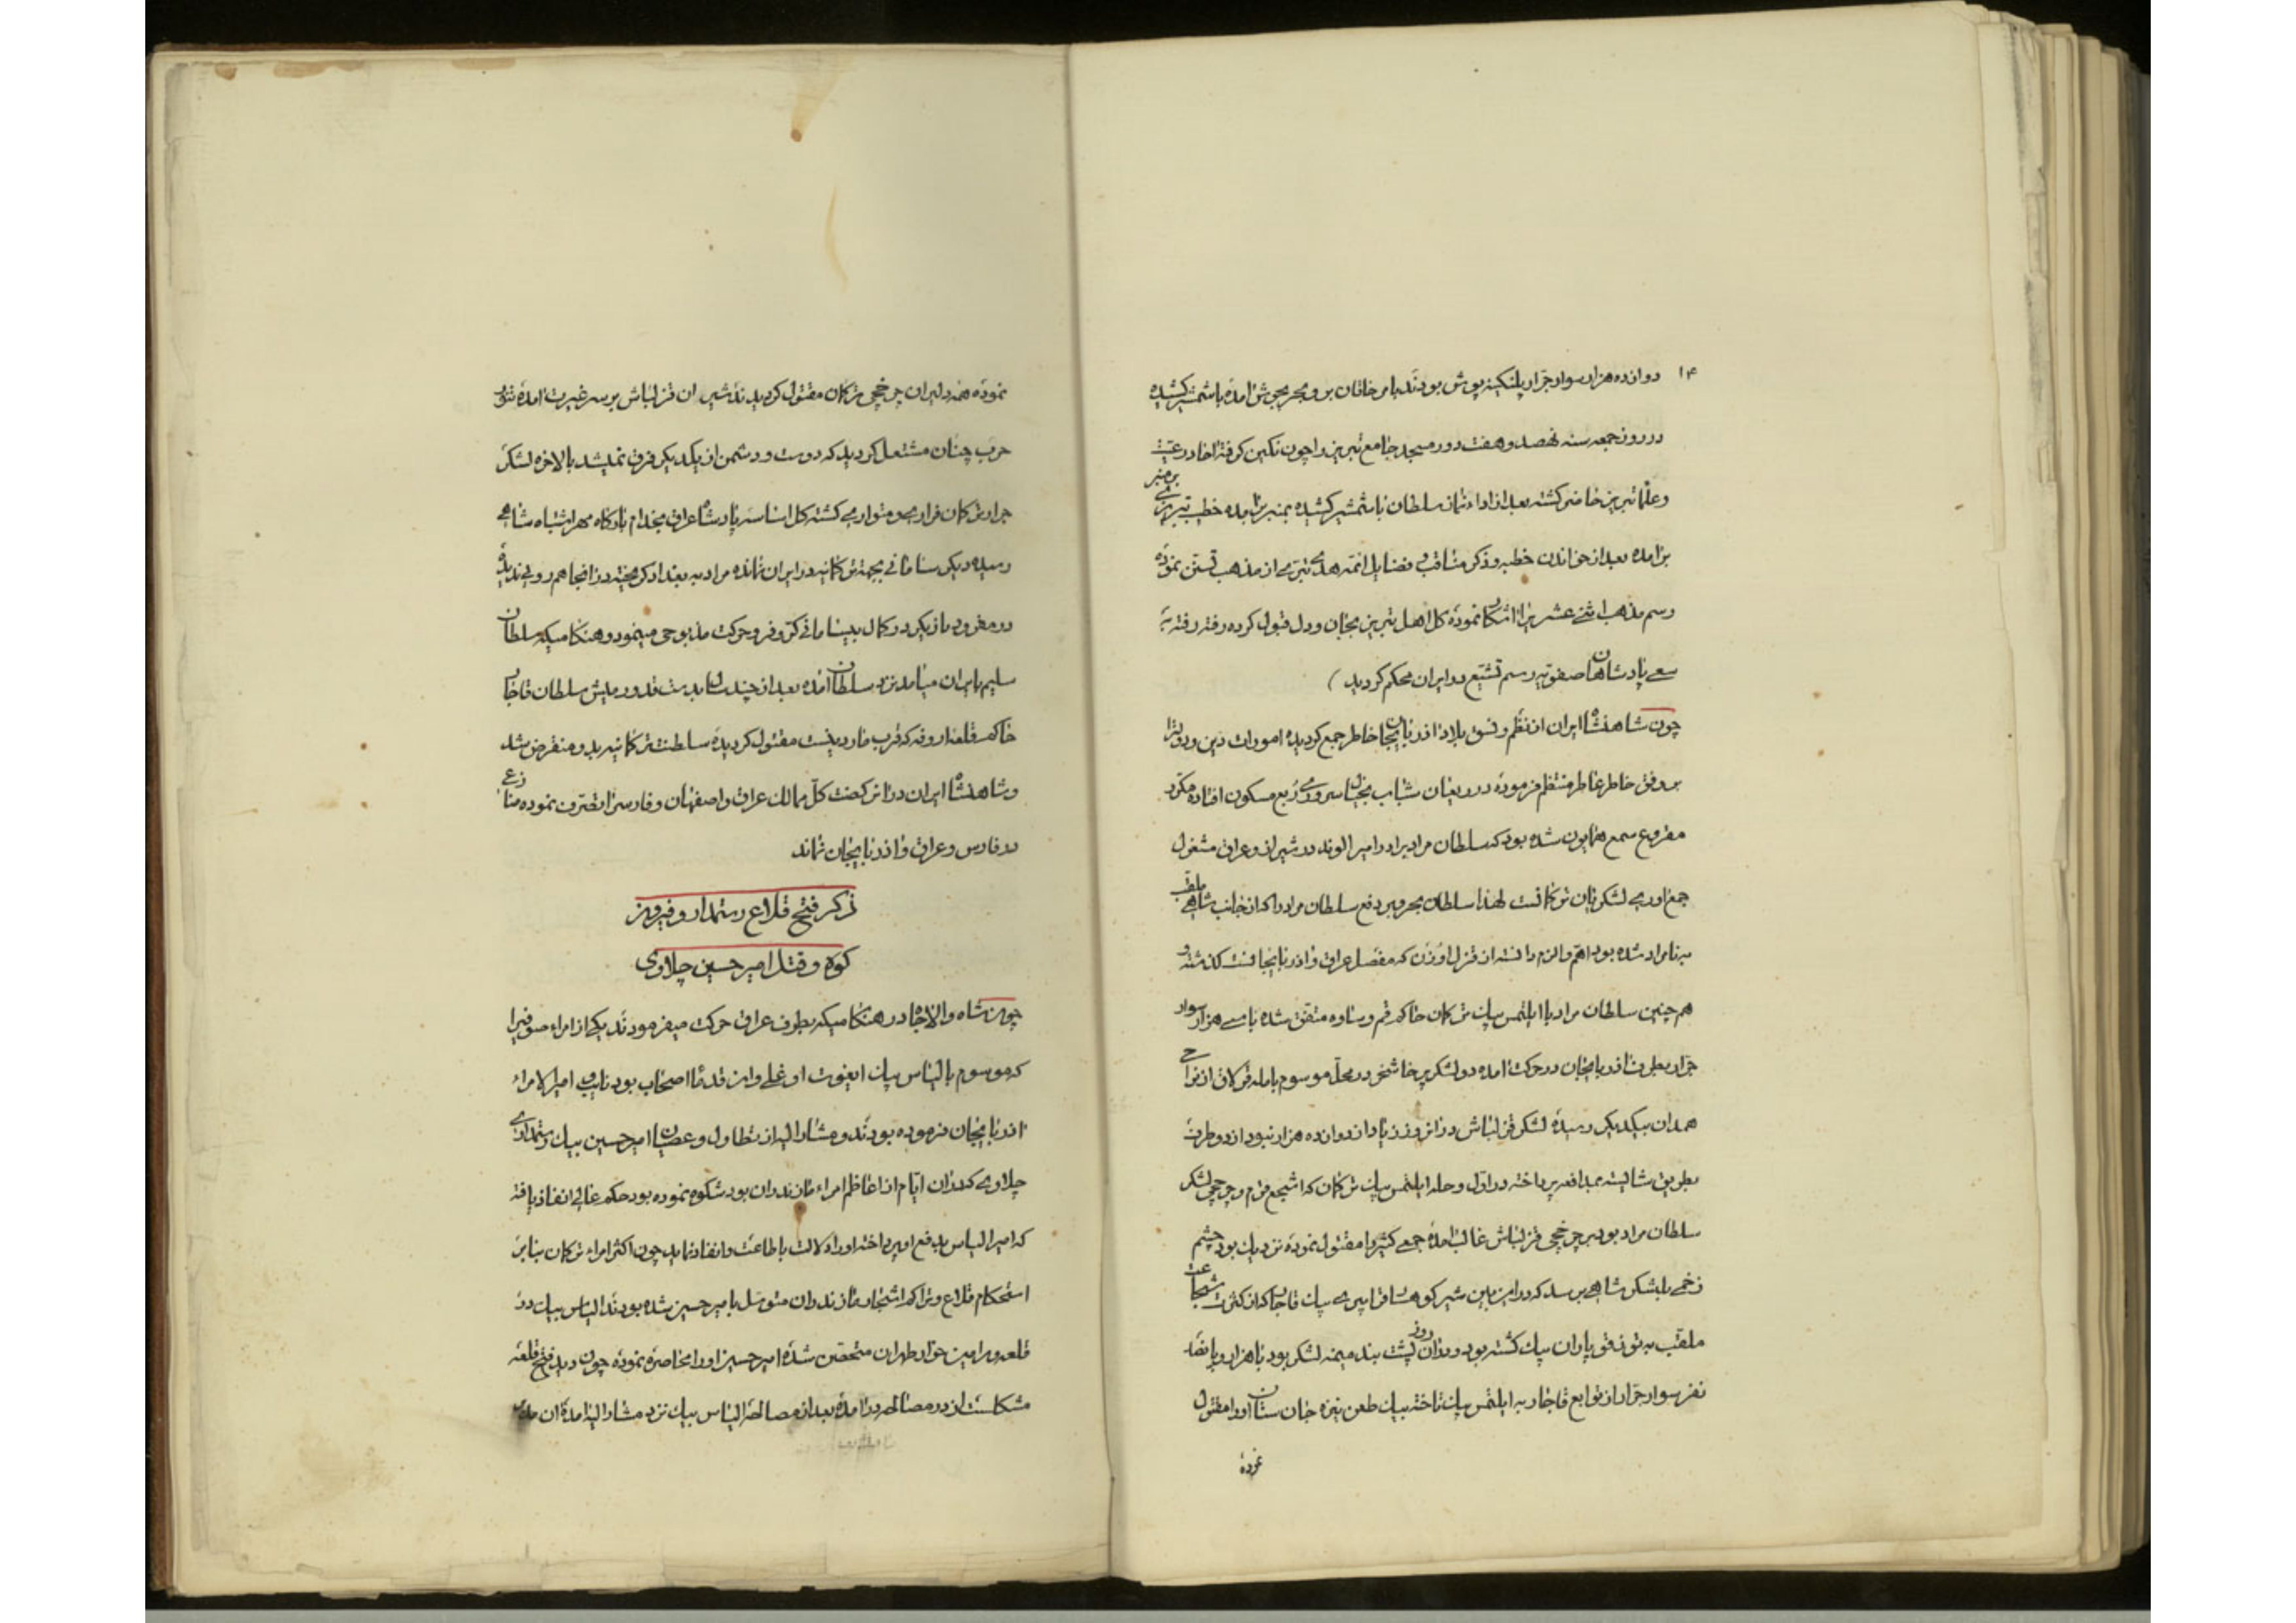 ۱۴
دوازده هزار سوار جرار پلنکینه پوش بودند با مر خاقان بر و بحر بجوش امده با شمشیر کشیده
در روز جمعه سنه نهصد و هفت دور مسجد جامع تبریز را چون نکین کرفته احاد رعیت
و علما تبریز حاضر کشته بعد از اداء نماز سلطان با شمشیر کشیده بمنبر برامده خطیب تبریزی بر منبر
برامده بعد از خواندن خطبه و ذکر مناقب و فضایل ائمه هدی تبری از مذهب تسنن نموده
رسم مذهب اثنی عشر یرا اشکار نموده کل اهل تبریز بجان و دل قبول کرده رفته رفته به
سعی پادشاهان صفویه رسم تشیع در ایران محکم کردید
چون شاهنشاه ایران از نظم و نسق بلاد اذربایجان خاطر جمع کردیده امورات دین و دولترا
بر وفق خاطر عاطر منتظم فرموده در ریعان شباب بخیال سروری ربع مسکون افتاده مکرر
مقروع سمع همایون شده بود که سلطان مراد برادر امیر الوند در شیراز و عراق مشغول
جمع اوری لشکریان ترکانست لهذا سلطان بحر و بر دفع سلطان مراد را که از جانب شاهی ملقب
به نامراد شده بود اهم و الزم دانسته از قزل اوزن که مفصل عراق و اذربایجانست کذشته و
هم چنین سلطان مراد با ایلتمس بیک ترکمان حاکم قم و ساوه متفق شده با سی هزار سوار
جرار بطرف اذربایجان در حرکت امده دو لشکر پرخاشخر در محل موسوم باملد قولاق از نواحی
همدان بیکدیکر رسیده لشکر قزلباش در انروز زیاد از دوازده هزار نبود از دو طرف
بطریق شایسته بمدافعه پرداخته در اول وحله ایلتمس بیک ترکمان که اشجع قوم و چرخچی لشکر
سلطان مراد بود بر چرخچی قزلباش غالب امده جمعی کثیر را مقتول نموده نزدیک بود چشم
زخمی بلشکر شاهی برسد که در این مابین شیر کوهسار قراپیری بیک قاجار که از کثرت شجاعت
ملقب به توز قوپاران بیک کشته بود و در ان روز پشت بند میمنه لشکر بود با هزار و پانصد
نفر سوار جرار از توابع قاجار به ایلتمس بیک تاخته بیک طعن نیزه جان ستان او را مقتول
نموده
نموده همه دلیران چرخچی ترکان مقتول کردیدند شیران قزلباش بر سر غیرت امده تنور
حرب چنان مشتعل کردید که دوست و دشمن از یکدیکر فرق نمیشد بالاخره لشکر
جرار ترکان فراری و متواری کشته کل اساسه پادشاه عراق بخدام بارکاه سپهر اشتباه شاهی
رسیده دیکر سامانی بجهة ترکانیه در ایران نمانده مراد به بغداد کریخته در انجا هم روی ندیده
در مغرب باز یکدر کمال بیسامانی کر و فر و حرکت مذبوحی مینمود و هنکامیکه سلطان
سلیم بایران میامد نزد سلطان امده بعد از چندسال بدست قدورمیش سلطان قاجار
حاکم قلعه اروفه که قرب ماردینست مقتول کردیده سلطنت ترکانیه بدو منقرض شد
و شاهنشاه ایران در انرکضت کل ممالک عراق و اصفهان و فارسرا تصرف نموده منازعی
در فارس و عراق و اذربایجان نماند
ذکر فتح قلاع رستمدار و فیروز
کوه و قتل امیر حسین چلاوی
چون شاه والاجاه در هنکامیکه بطرف عراق حرکت میفرمودند یکی از امراء صوفیرا
که موسوم بالیاس بیک ایغوت اوغلی و از قدما اصحاب بود نایب امیرالامراء
اذربایجان فرموده بودند و مشارالیه از تطاول و عصیان امیر حسین بیک رستمداری
چلاوی که در ان ایام از اعاظم امراء مازندران بود شکوه نموده بود حکم عالی انفاذ یافته
که امیر الیاس بدفع او پرداخته او را دلالت باطاعت و انقاد نماید چون اکثر امراء ترکان بنا بر
استحکام قلاع و تراکم اشجار مازندران متوسل بامیر حسین شده بودند الیاس بیک در
قلعه ورامین خوار طهران متحصن شده امیر حسین او را محاصره نموده چون دید فتح قلعه
مشکلست از در مصالحه درامده بعد از مصالحه الیاس بیک نزد مشارالیه امده ان